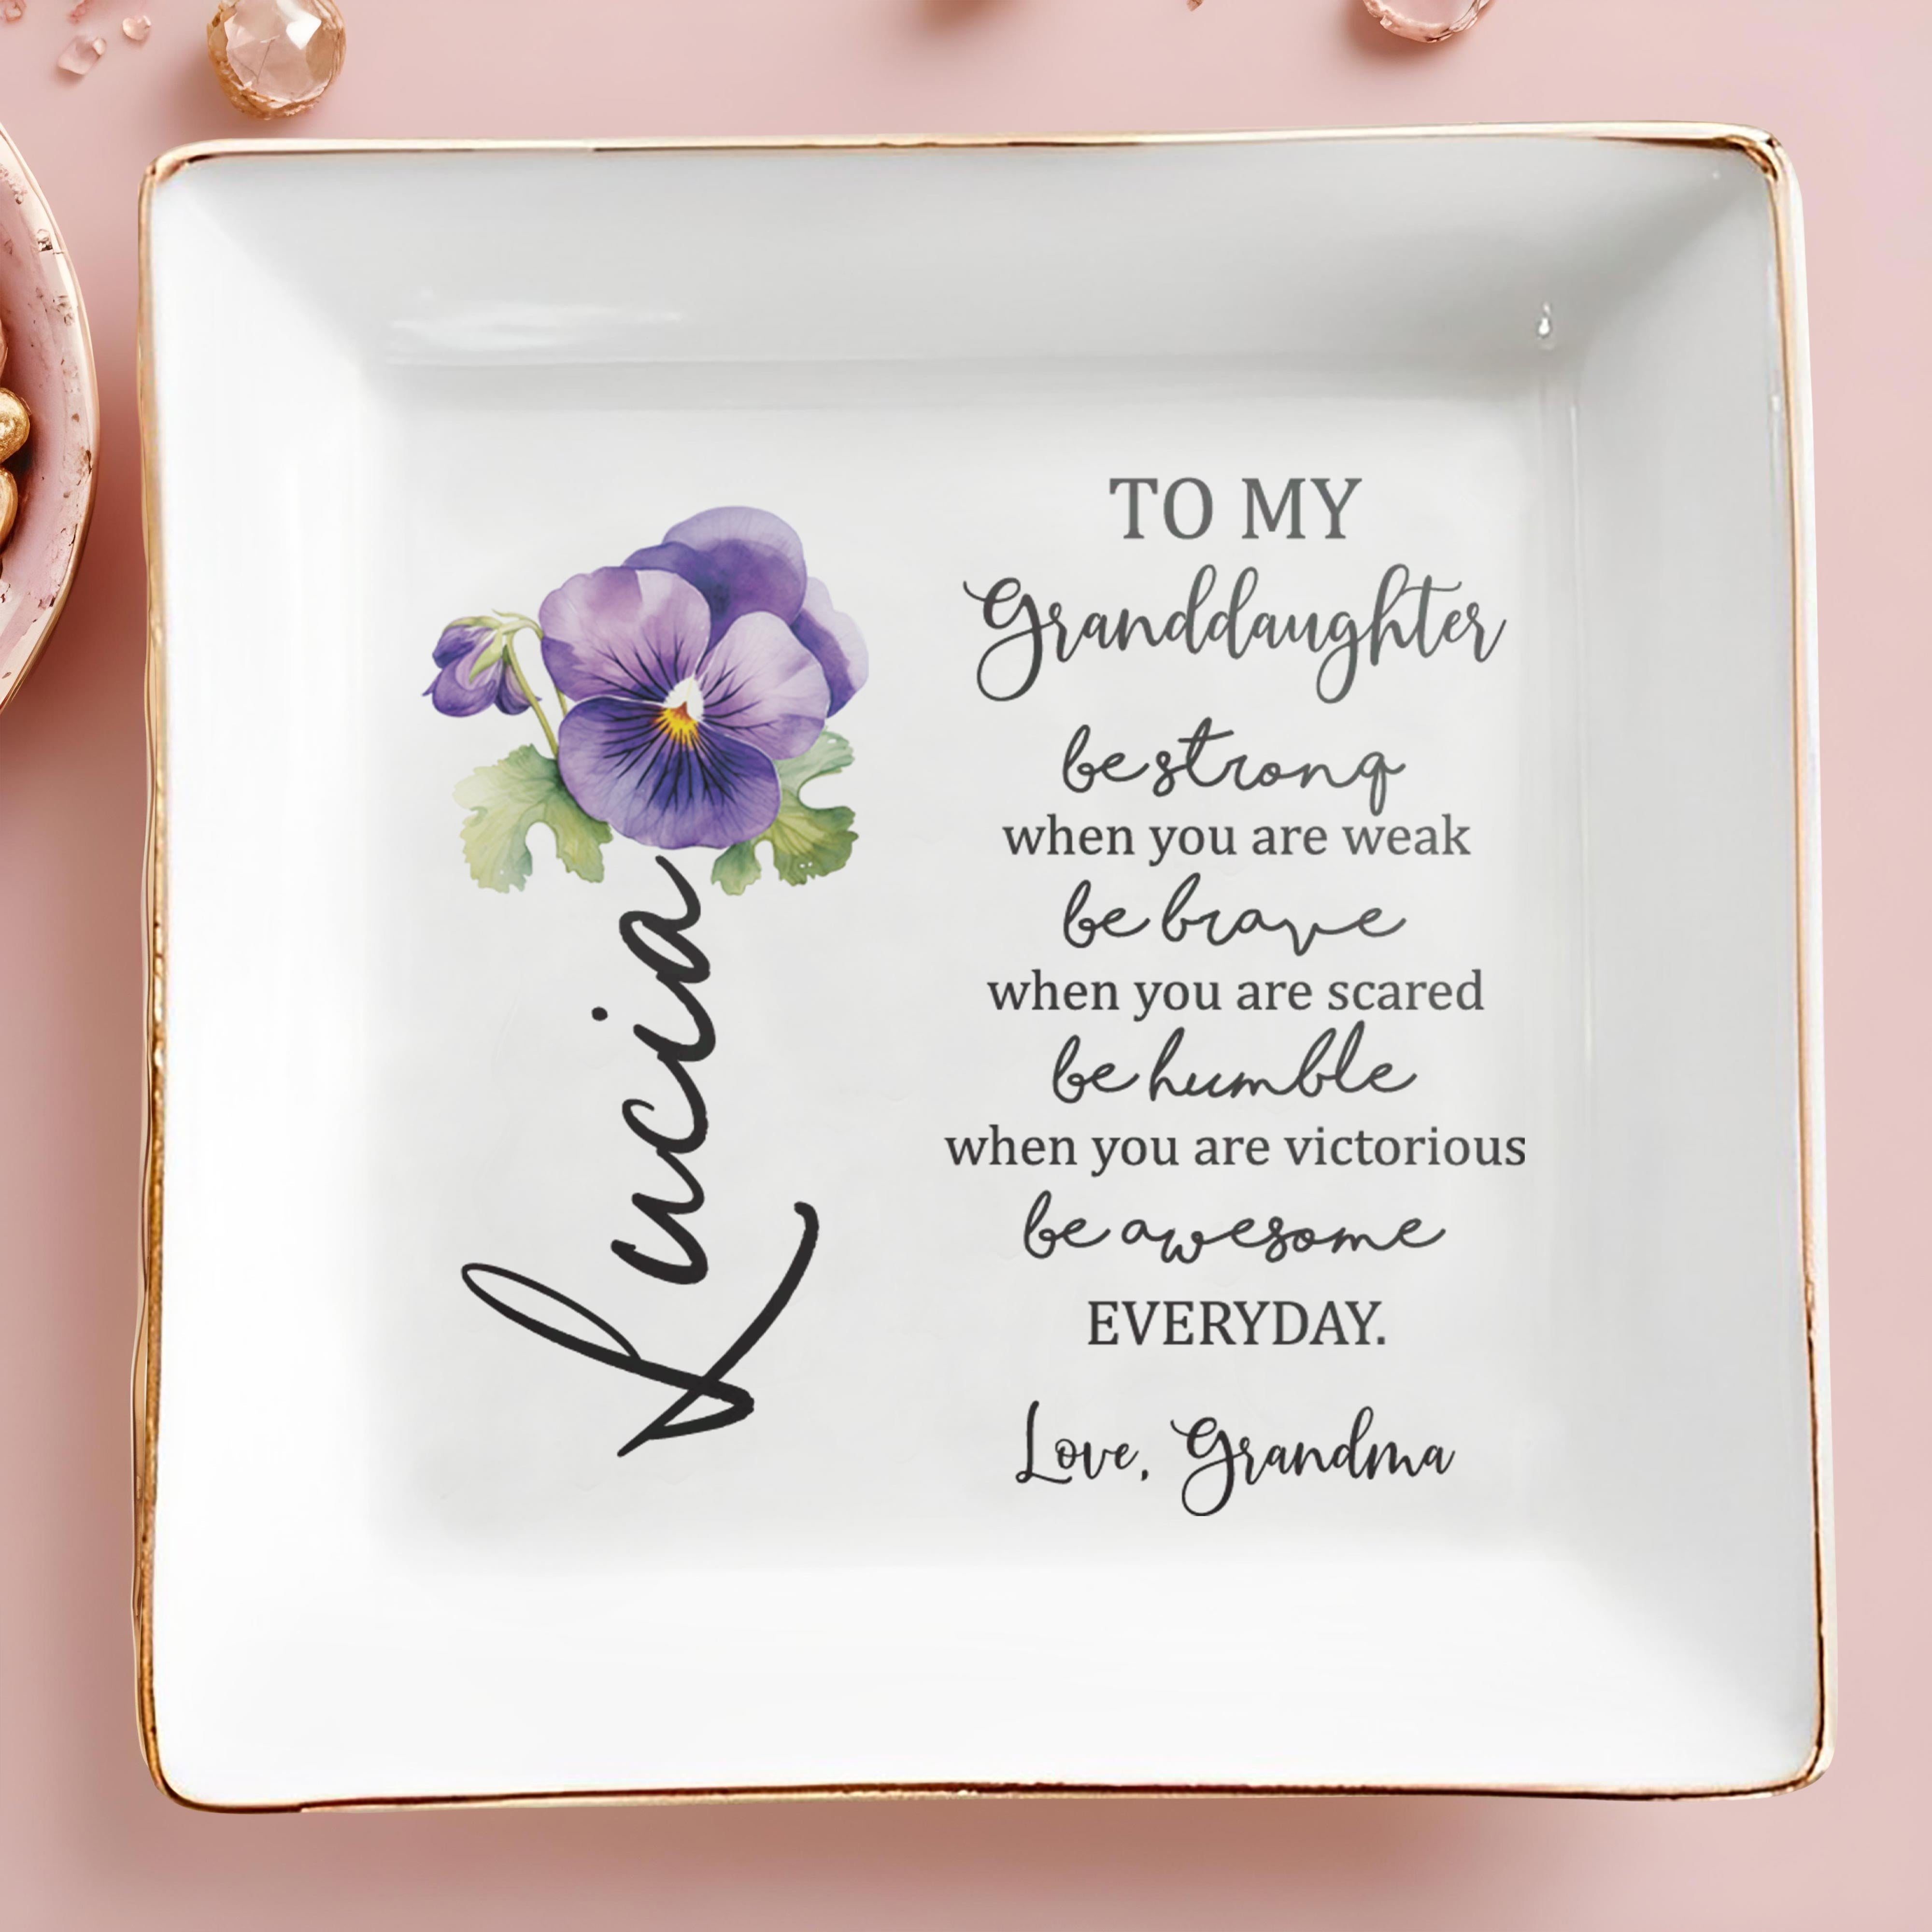 Lucia
TO MY
Granddaughter
be strong
when you are weak
be brave
when you are scared
be humble
when you are victorious
be awesome
EVERYDAY.
Love, Grandma